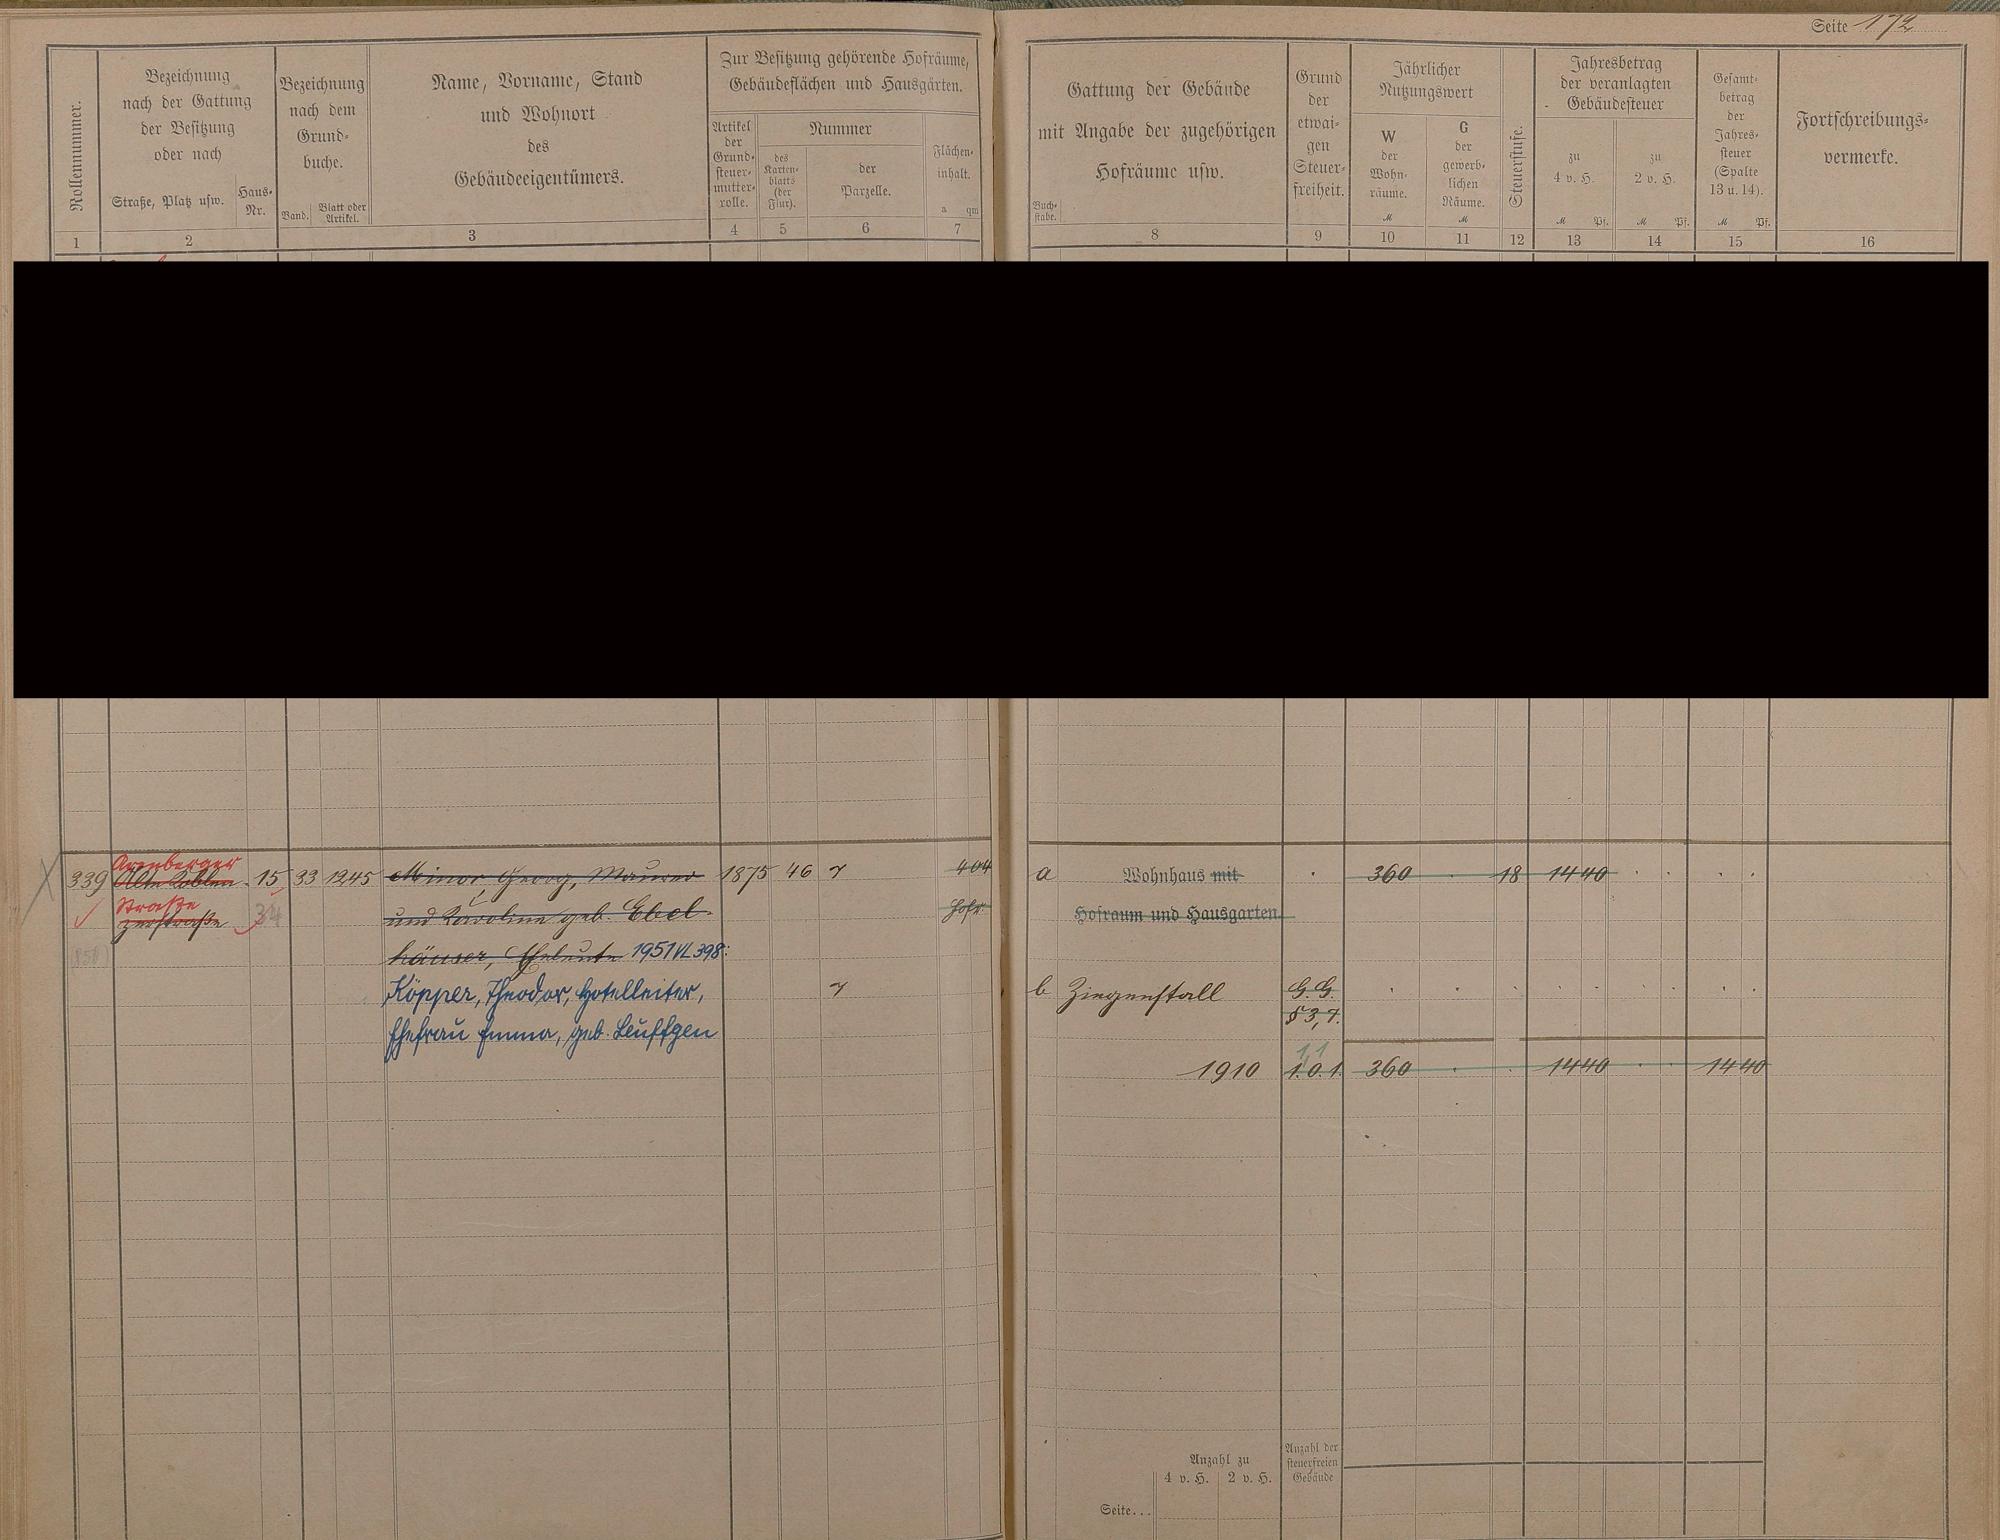 Seite 172
Rollennummer.
Bezeichnung
nach der Gattung
der Besitzung
oder nach
Straße, Platz usw.
Haus-
Nr.
Bezeichnung
nach dem
Grund-
buche.
Band.
Blatt oder
Artikel.
Name, Vorname, Stand
und Wohnort
des
Gebäudeeigentümers.
Zur Besitzung gehörende Hofräume,
Gebäudeflächen und Hausgärten.
Artikel
der
Grund-
steuer-
mutter-
rolle.
Nummer
des
Karten-
blatts
(der
Flur).
der
Parzelle.
Flächen-
inhalt.
a qm
Buch-
stabe.
Gattung der Gebäude
mit Angabe der zugehörigen
Hofräume usw.
Grund
der
etwai-
gen
Steuer-
freiheit.
Jährlicher
Nutzungswert
W
der
Wohn-
räume.
M
G
der
gewerb-
lichen
Räume.
M
Steuerstufe.
Jahresbetrag
der veranlagten
Gebäudesteuer
zu
4 v. H.
M Pf.
zu
2 v. H.
M Pf.
Gesamt-
betrag
der
Jahres-
steuer
(Spalte
13 u. 14).
M Pf.
Fortschreibungs-
vermerke.
1 2 3 4 5 6 7 8 9 10 11 12 13 14 15 16
Arenberger
339 Alte Koblen- 15 33 1245 Minor, Georg, Maurer 1875 46 7 404 a Wohnhaus mit 360 18 1440
Straße
zerstraße 34 und Karoline geb. Ebel- Hofr. Hofraum und Hausgarten
häuser, Eheleute 1951 VL 398:
Köpper, Theodor, Hotelleiter, 7 b Ziegenstall G. G.
§ 3, 7.
Ehefrau Emma, geb. Leuffgen
1,1
1910 1.0.1. 360 1440 1440
Anzahl zu
4 v. H. 2 v. H.
Anzahl der
steuerfreien
Gebäude
Seite...